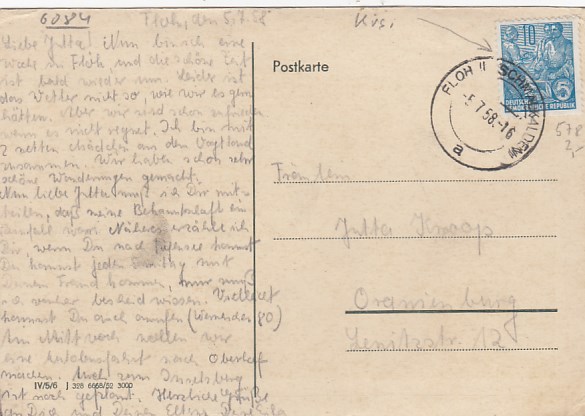 6084
Floh, den 5.7.58
Liebe Jutta! Nun bin ich eine
Woche in Floh und die schöne Zeit
ist bald wieder um. Leider ist
das Wetter nicht so, wie wir es gern
hätten. Aber wir sind schon zufrieden
wenn es nicht regnet. Ich bin mit
2 netten Mädchen aus dem Vogtland
zusammen. Wir haben schon sehr
schöne Wanderungen gemacht.
Nun liebe Jutta muß ich Dir mit-
teilen, daß meine Bekanntschaft ein
Reinfall war. Näheres erzähle ich
Dir, wenn Du nach kommst
Du kannst jeden Samstag mit
Deinem Freund kommen, nur muß
ich vorher bescheid wissen. Vielleicht
kannst Du auch anrufen ( 80)
Am Mittwoch wollen wir
eine fahrt nach Oberhof
machen. Auch zum Inselsberg
ist noch geplant. Herzliche Grüße
Dich und Deinen Eltern
IV/5/6 J 328 6668/52 3000
Postkarte
FLOH II
SCHMALKALDEN
-5.7.58.-16
a
10
5
DEUTSCHE
DEMOKRATISCHE REPUBLIK
578
2,-
Fräulein
Jutta Knaap
Oranienburg
Lenitzstr. 12